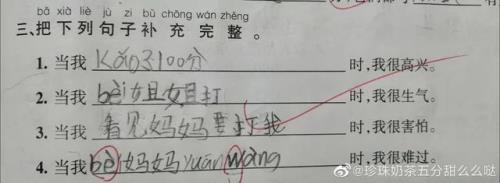 bǎ xià liè jù zi bǔ chōng wán zhěng
三、把下列句子补充完整。
1. 当我 kǎo了100分 时,我很高兴。
2. 当我 bèi姐姐打 时,我很生气。
3. 当我 看见妈妈要打我 时,我很害怕。
4. 当我 bèi妈妈yuān wàng 时,我很难过。
@珍珠奶茶五分甜么么哒